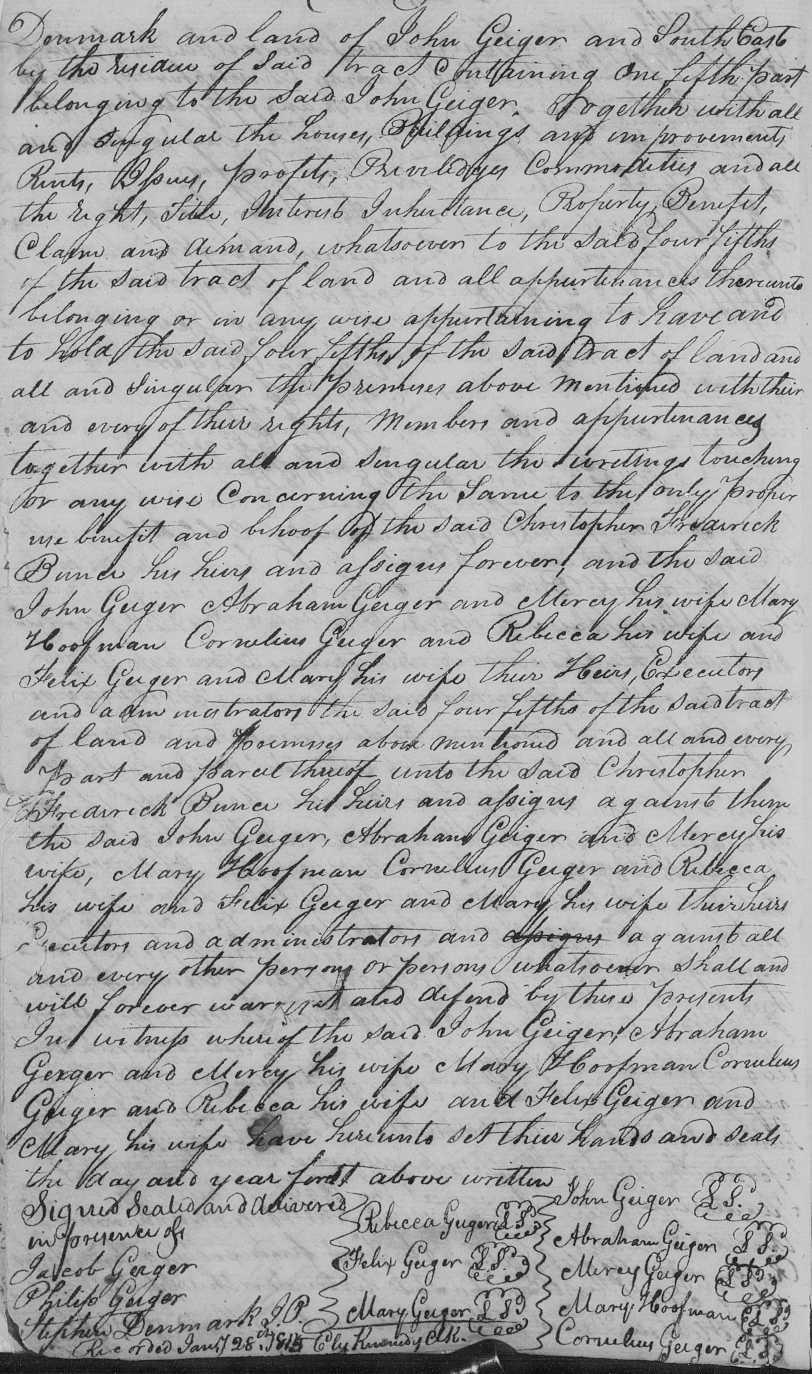 Denmark and land of John Geiger and South East
by the residue of said tract containing One fifth part
belonging to the said John Geiger. Together with all
and singular the houses, Buildings and improvements
Rents, Issues, profits, Priviledges Commodities and all
the right, Title, Interest Inheritance, Property, Benefit,
Claim and demand, whatsoever to the said four fifths
of the said tract of land and all appurtenances thereunto
belonging or in any wise appurtaining to have and
to hold the said four fifths of the said tract of land and
all and singular the premises above mentioned with their
and every of their rights, Members and appurtenances
together with all and singular the writings touching
or any wise Concerning the same to the only proper
use benefit and behoof of the said Christopher Frederick
Bunce his heirs and assigns forever, and the said
John Geiger Abraham Geiger and Mercy his wife Mary
Hoofman Cornelius Geiger and Rebecca his wife and
Felix Geiger and Mary his wife their Heirs, Executors
and administrators the said four fifths of the said tract
of land and Premises above mentioned and all and every
Part and parcel thereof unto the said Christopher
Frederick Bunce his heirs and assigns against them
the said John Geiger, Abraham Geiger and Mercy his
wife, Mary Hoofman Cornelius Geiger and Rebecca
his wife and Felix Geiger and Mary his wife their heirs
Executors and administrators and assigns against all
and every other person or persons whatsoever shall and
will forever warrant and defend by these presents
In witness whereof the said John Geiger, Abraham
Geiger and Mercy his wife Mary Hoofman Cornelius
Geiger and Rebecca his wife and Felix Geiger and
Mary his wife have hereunto set their hands and seals
the day and year first above written
Signed Sealed and delivered
in presence of
Jacob Geiger
Philip Geiger
Stephen Denmark J.P.
Recorded Jany 28th
Ely Kennedy Clk.
Rebecca Geiger L S.
Felix Geiger L S.
Mary Geiger L S
John Geiger L S.
Abraham Geiger L S.
Mercy Geiger L S.
Mary Hoofman L S
Cornelius Geiger L S.